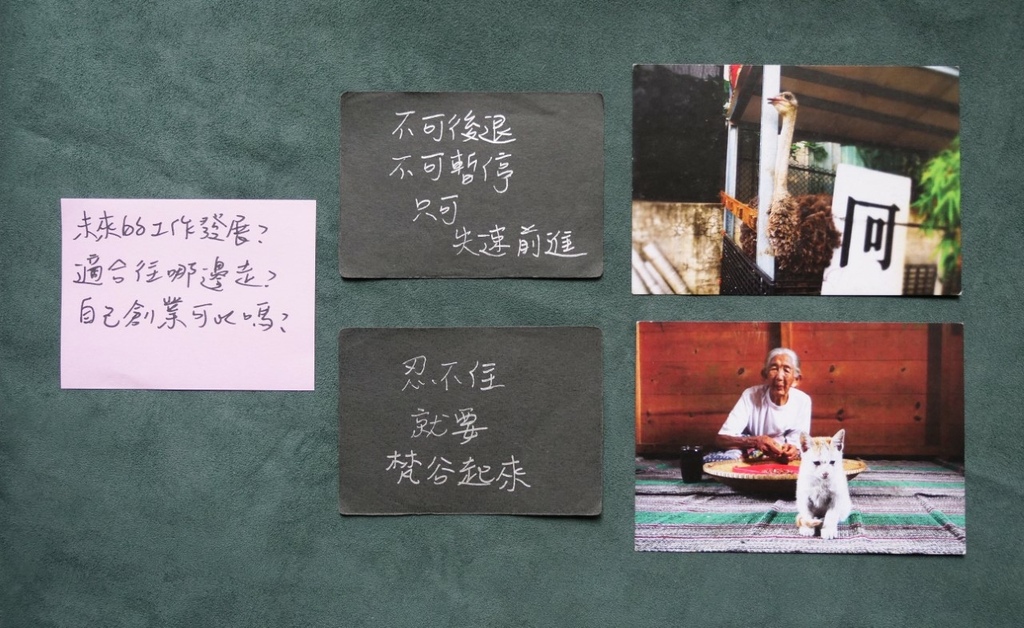 未來的工作發展?
適合往哪邊走?
自己創業可以嗎?
不可後退
不可暫停
只可
失速前進
忍不住
就要
梵谷起來
阿